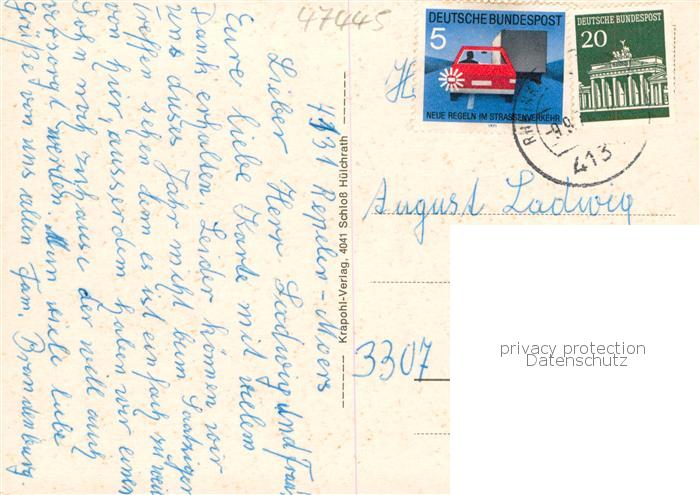 47445
4131 Repelen-Moers
Lieber Herr Ladwig und Frau,
Eure liebe Karte mit vielem
Dank erhalten. Leider können wir
uns dieses Jahr nicht beim
treffen sehen denn es ist einfach zu weit
von hier, ausserdem haben wir einen
Sohn noch zuhause der will auch
versorgt werden. Nun viele liebe
Grüße von uns allen Fam. Brandenburg.
Krapohl-Verlag, 4041 Schloß Hülchrath
DEUTSCHE BUNDESPOST
5
NEUE REGELN IM STRASSENVERKEHR
1971
DEUTSCHE BUNDESPOST
20
413
August Ladwig
3307
privacy protection
Datenschutz